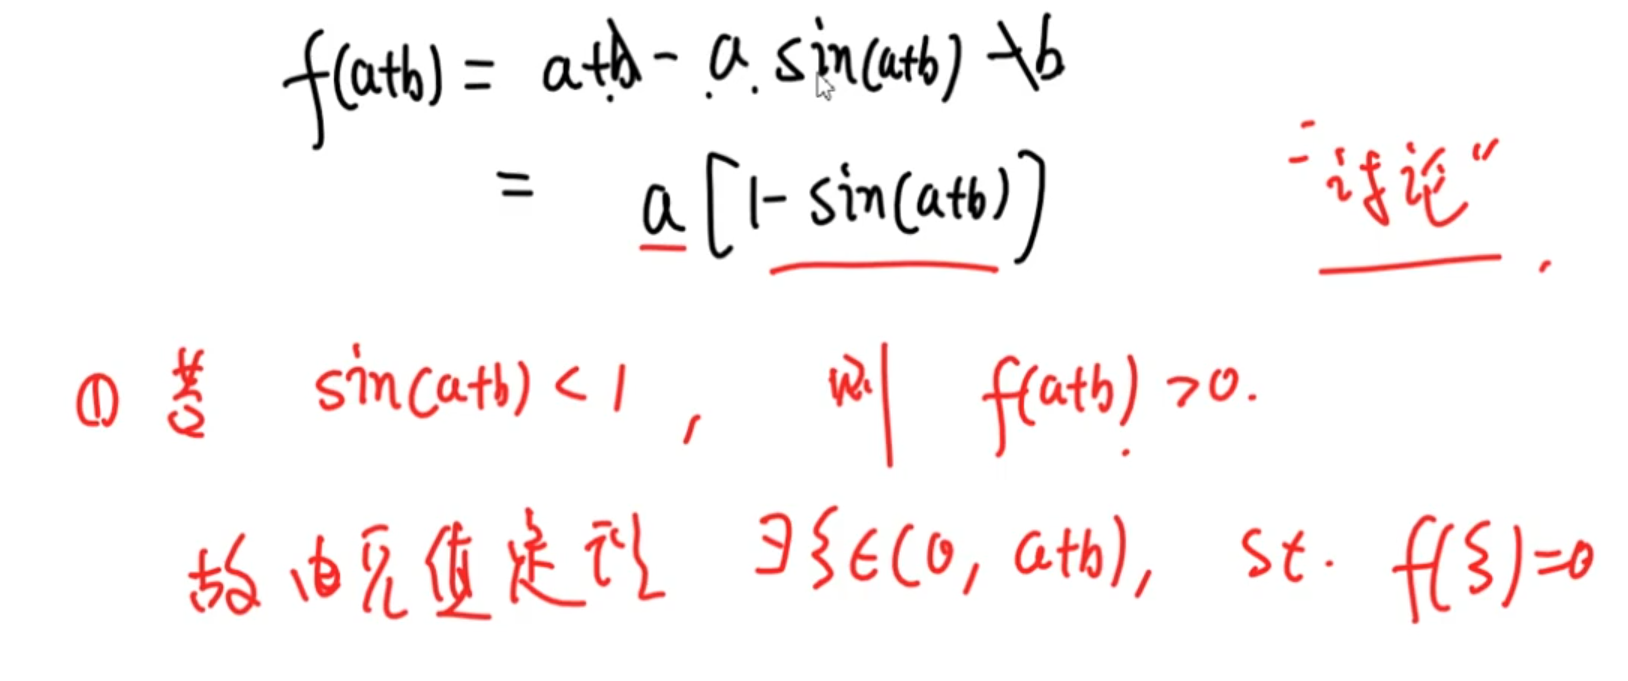 f(a+b) = a+b - a. sin(a+b) - b
= a [1 - sin(a+b)]
"讨论"
① 若 sin(a+b) < 1, 则 f(a+b) > 0.
故由零值定理 ∃ξ∈(0, a+b), st. f(ξ)=0